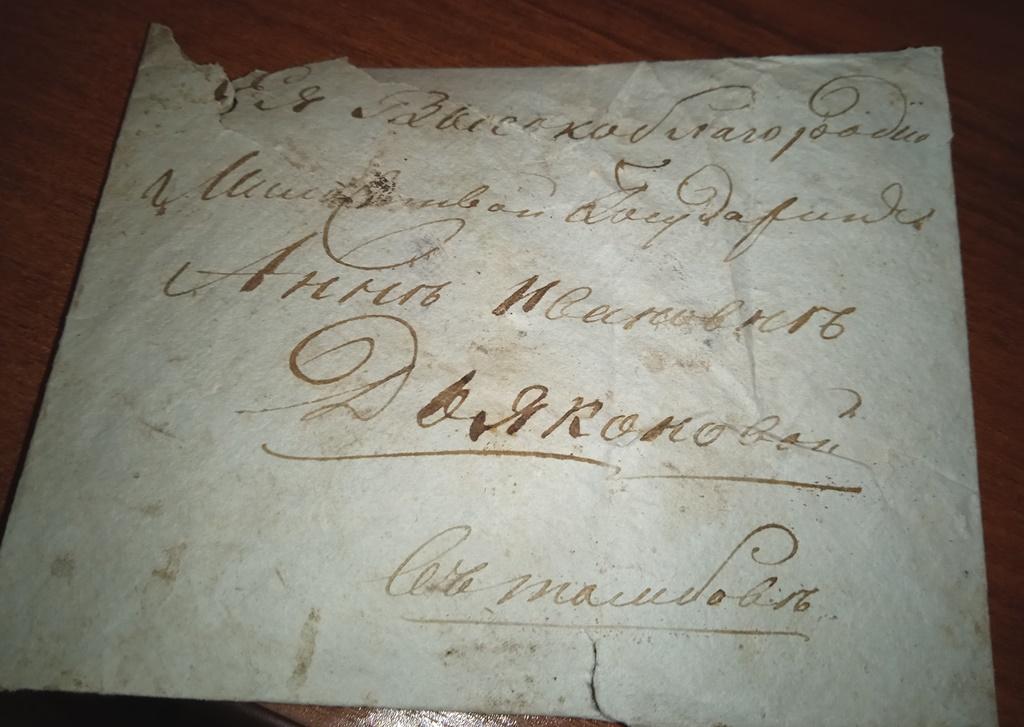 Ея Высокоблагородию
Милостивой Государынѣ
Аннѣ Ивановнѣ
Дьяконовой
въ тамбовѣ